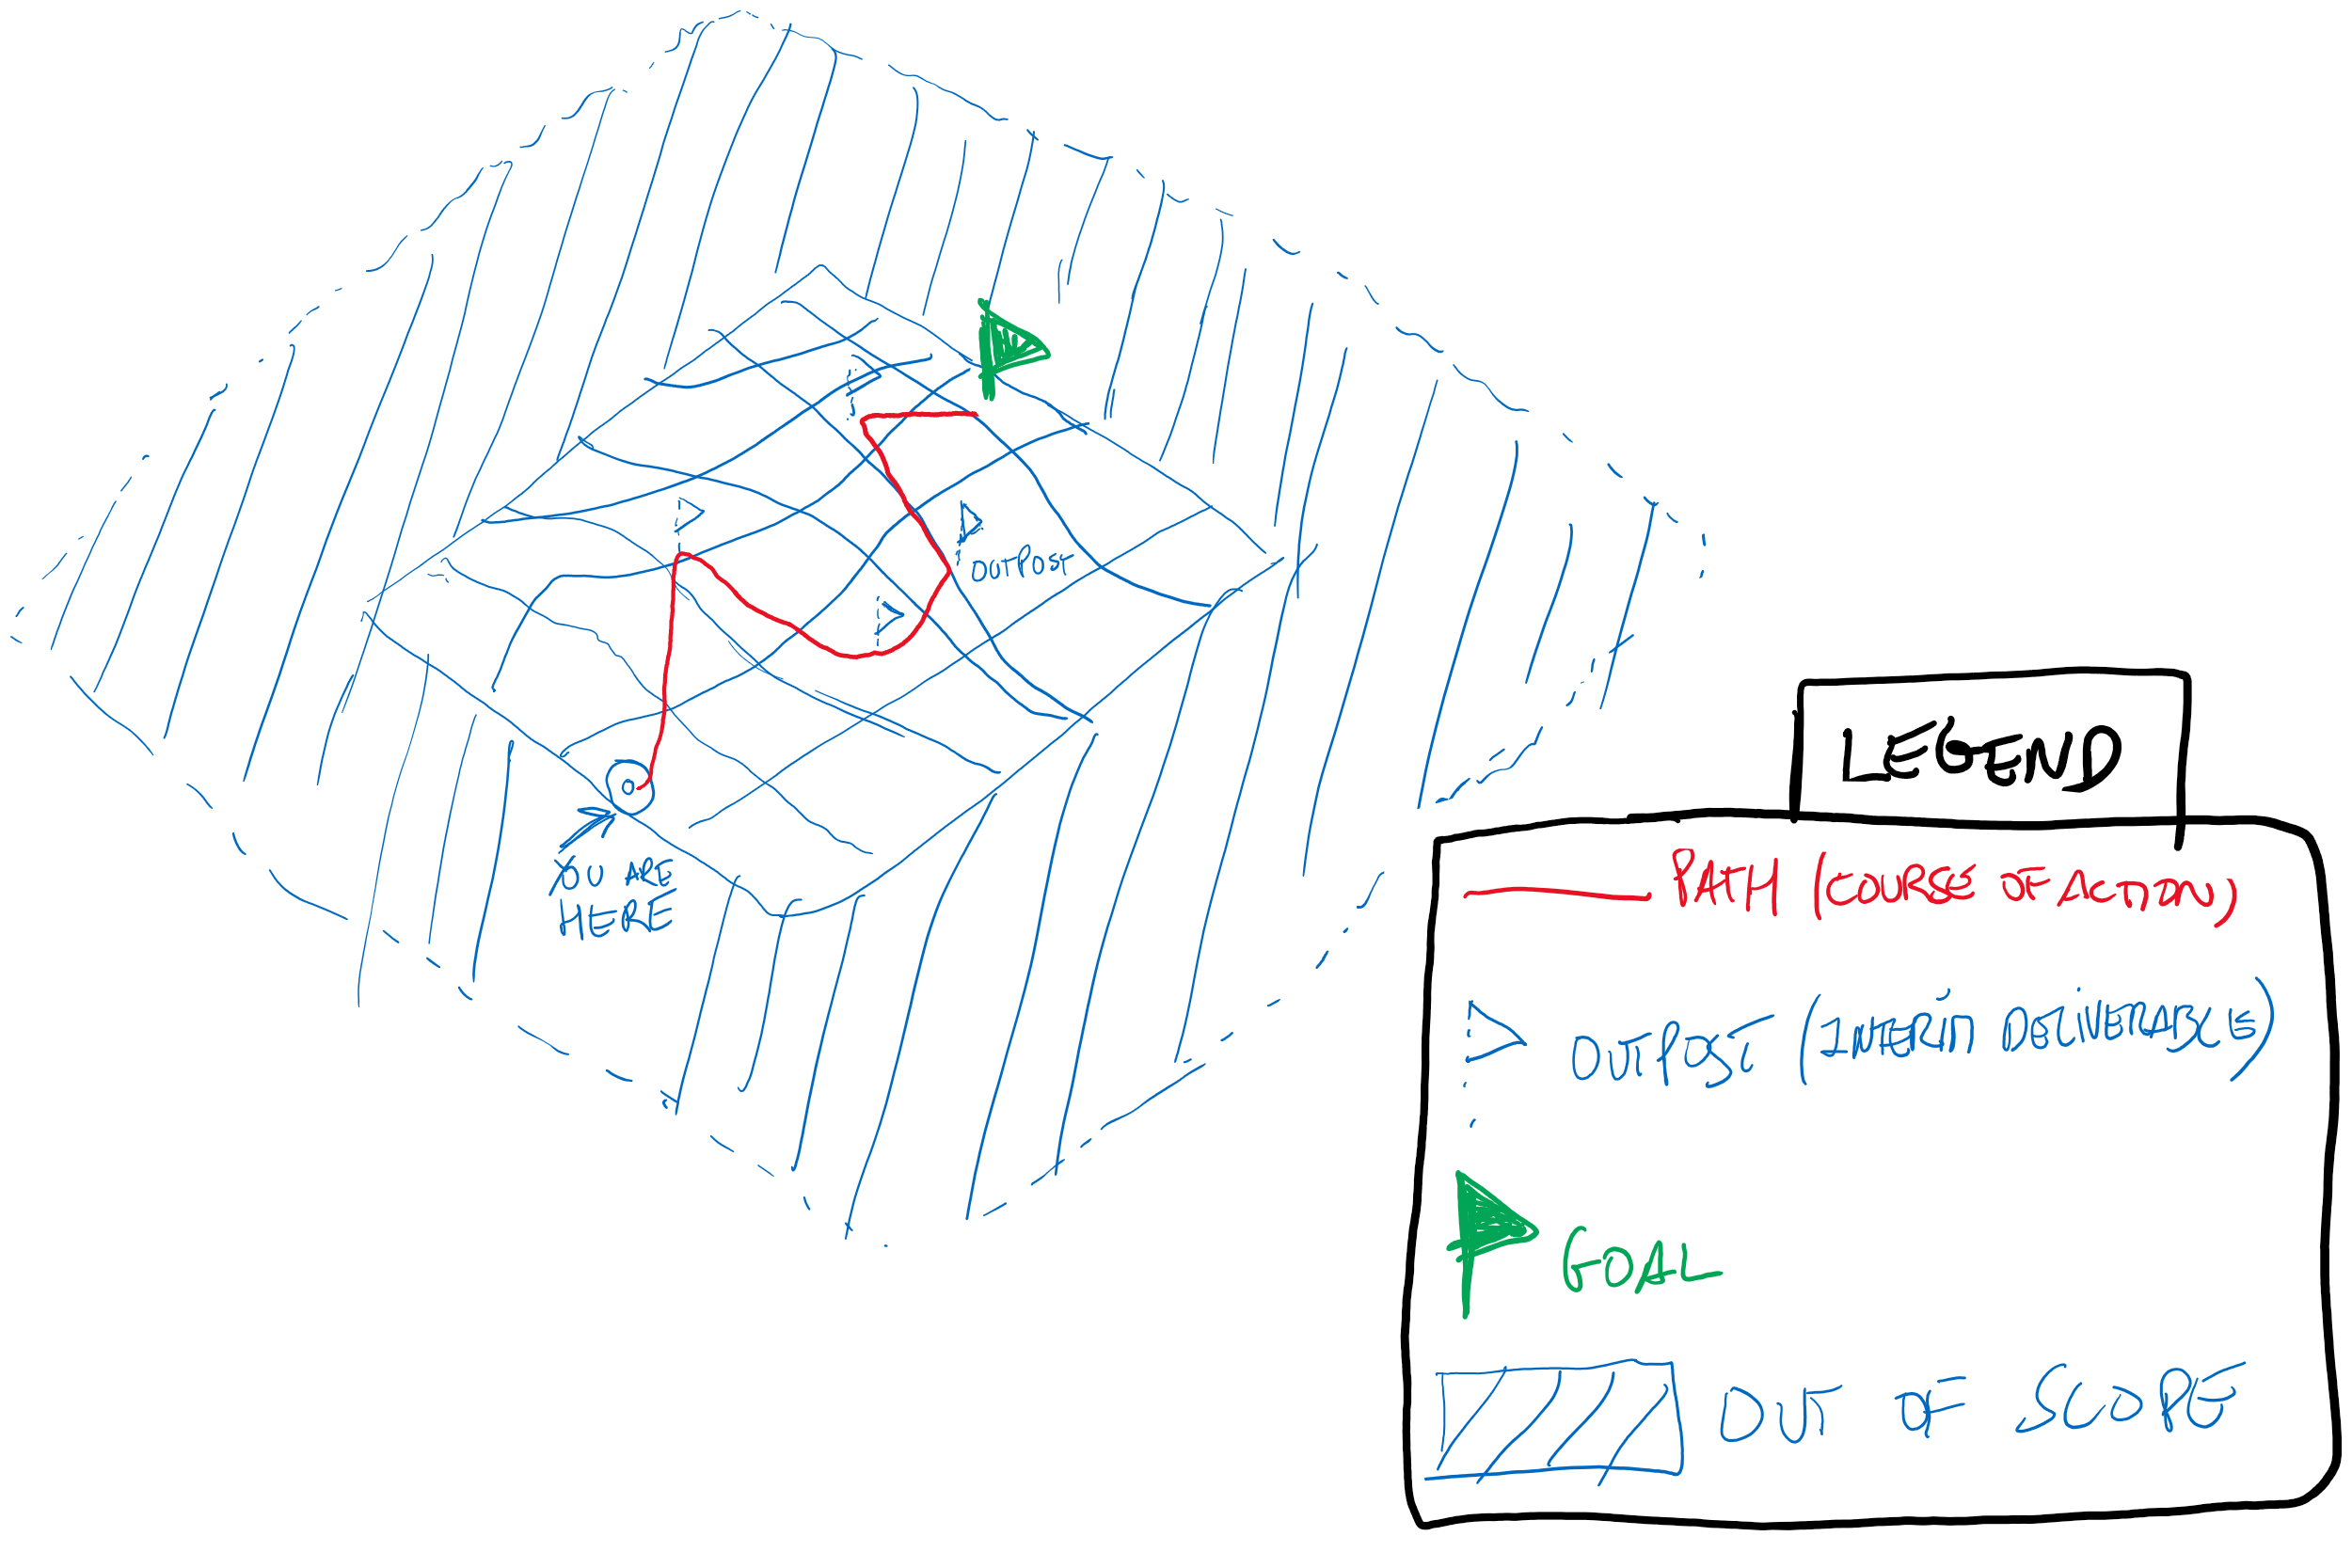 OUTPOST
YOU ARE
HERE
LEGEND
PATH (COURSE OF ACTION)
OUTPOST (INTERIM DELIVERABLES)
GOAL
OUT OF SCOPE